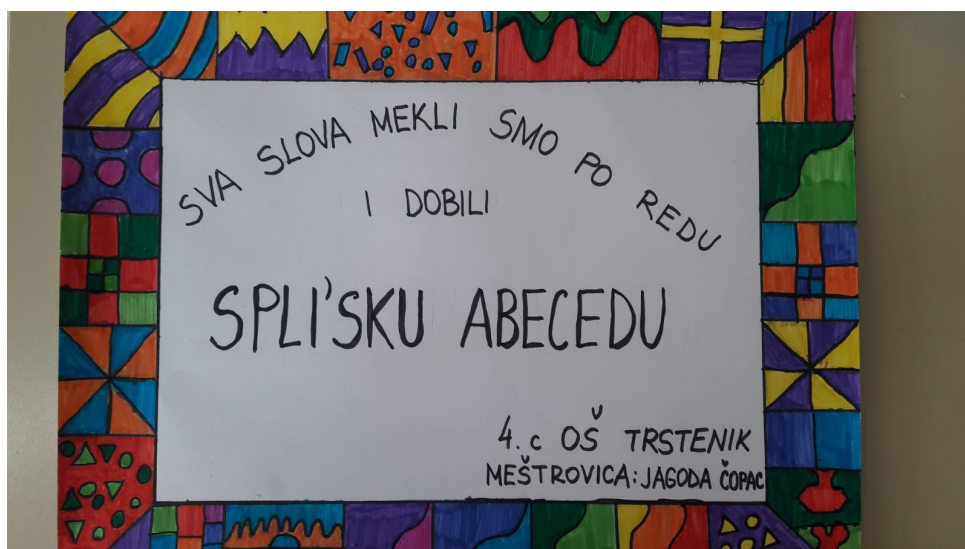 SVA SLOVA MEKLI SMO PO REDU
I DOBILI
SPLI'SKU ABECEDU
4. c OŠ TRSTENIK
MEŠTROVICA: JAGODA ČOPAC